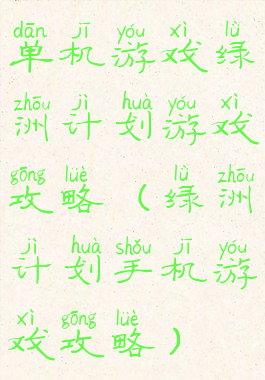 dān jī yóu xì lǜ
单机游戏绿
zhōu jì huà yóu xì
洲计划游戏
gōng lüè lǜ zhōu
攻略（绿洲
jì huà shǒu jī yóu
计划手机游
xì gōng lüè
戏攻略）